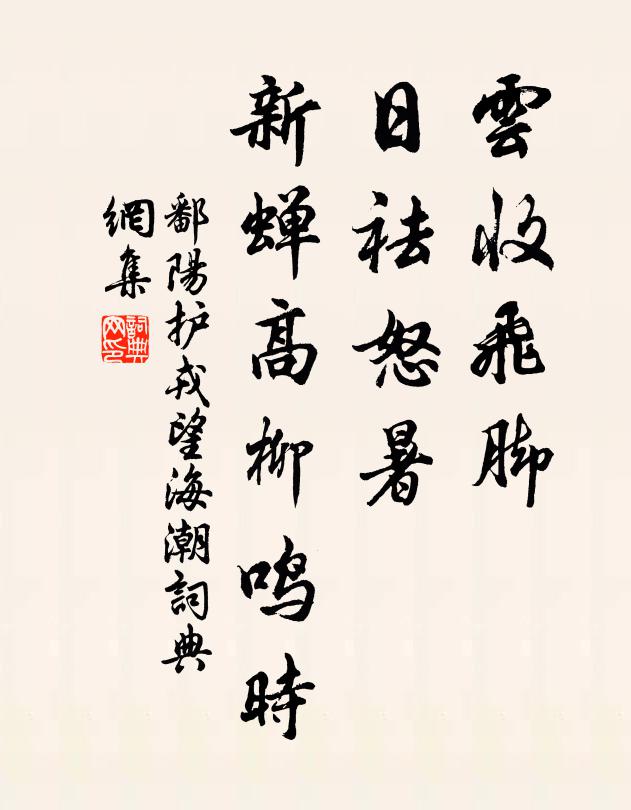 雲收飛脚
日祛怒暑
新蝉高柳鸣時
鄱陽护戎望海潮詞典
網集
詞典
网印